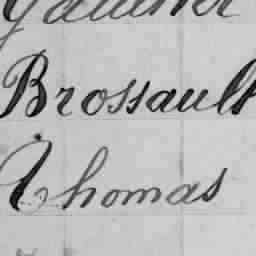 Brossault
Thomas